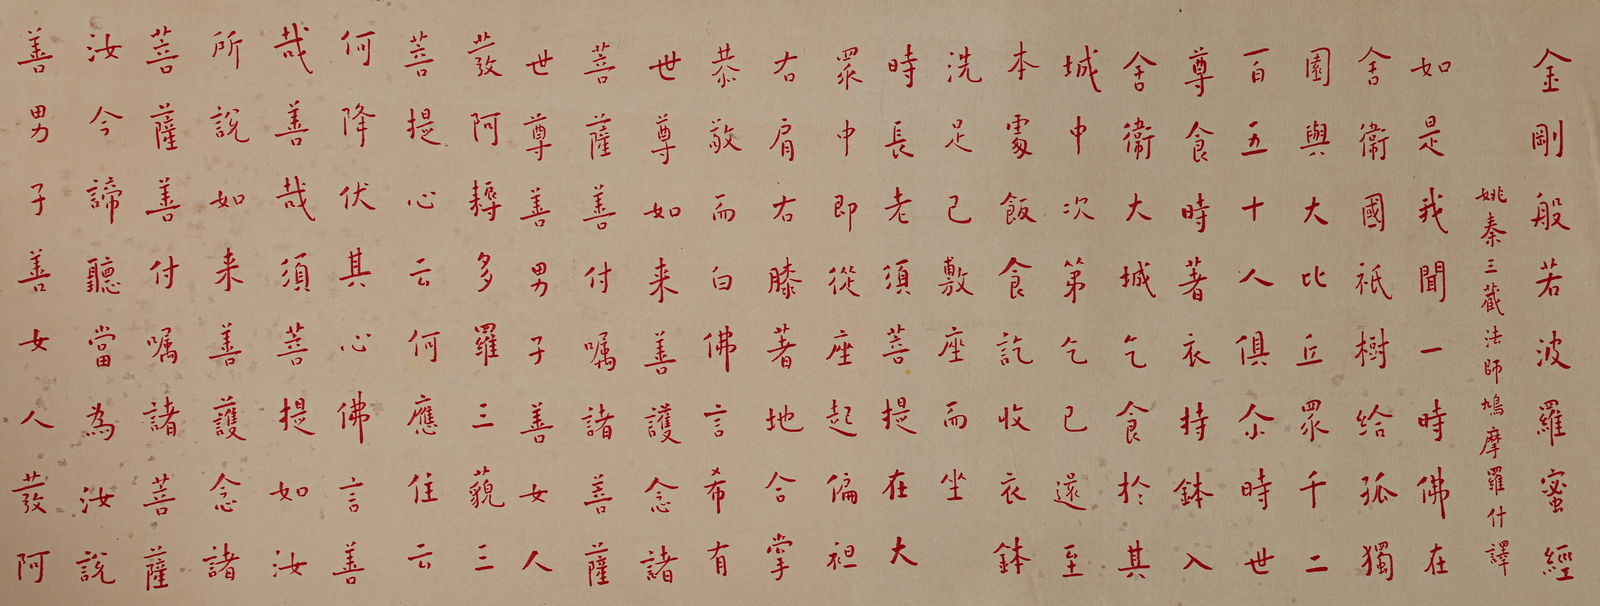 金剛般若波羅蜜經
姚秦三藏法師鳩摩羅什譯
如是我聞一時佛在
舍衛國祇樹给孤獨
園與大比丘眾千二
百五十人俱尒時世
尊食時著衣持鉢入
舍衛大城乞食於其
城中次第乞已還至
本處飯食訖收衣鉢
洗足已敷座而坐
時長老須菩提在大
眾中即從座起偏袒
右肩右膝著地合掌
恭敬而白佛言希有
世尊如来善護念諸
菩薩善付嘱諸善薩
世尊善男子善女人
發阿耨多羅三藐三
菩提心云何應住云
何降伏其心佛言善
哉善哉須菩提如汝
所說如来善護念諸
菩薩善付嘱諸菩薩
汝今諦聽當為汝說
善男子善女人發阿